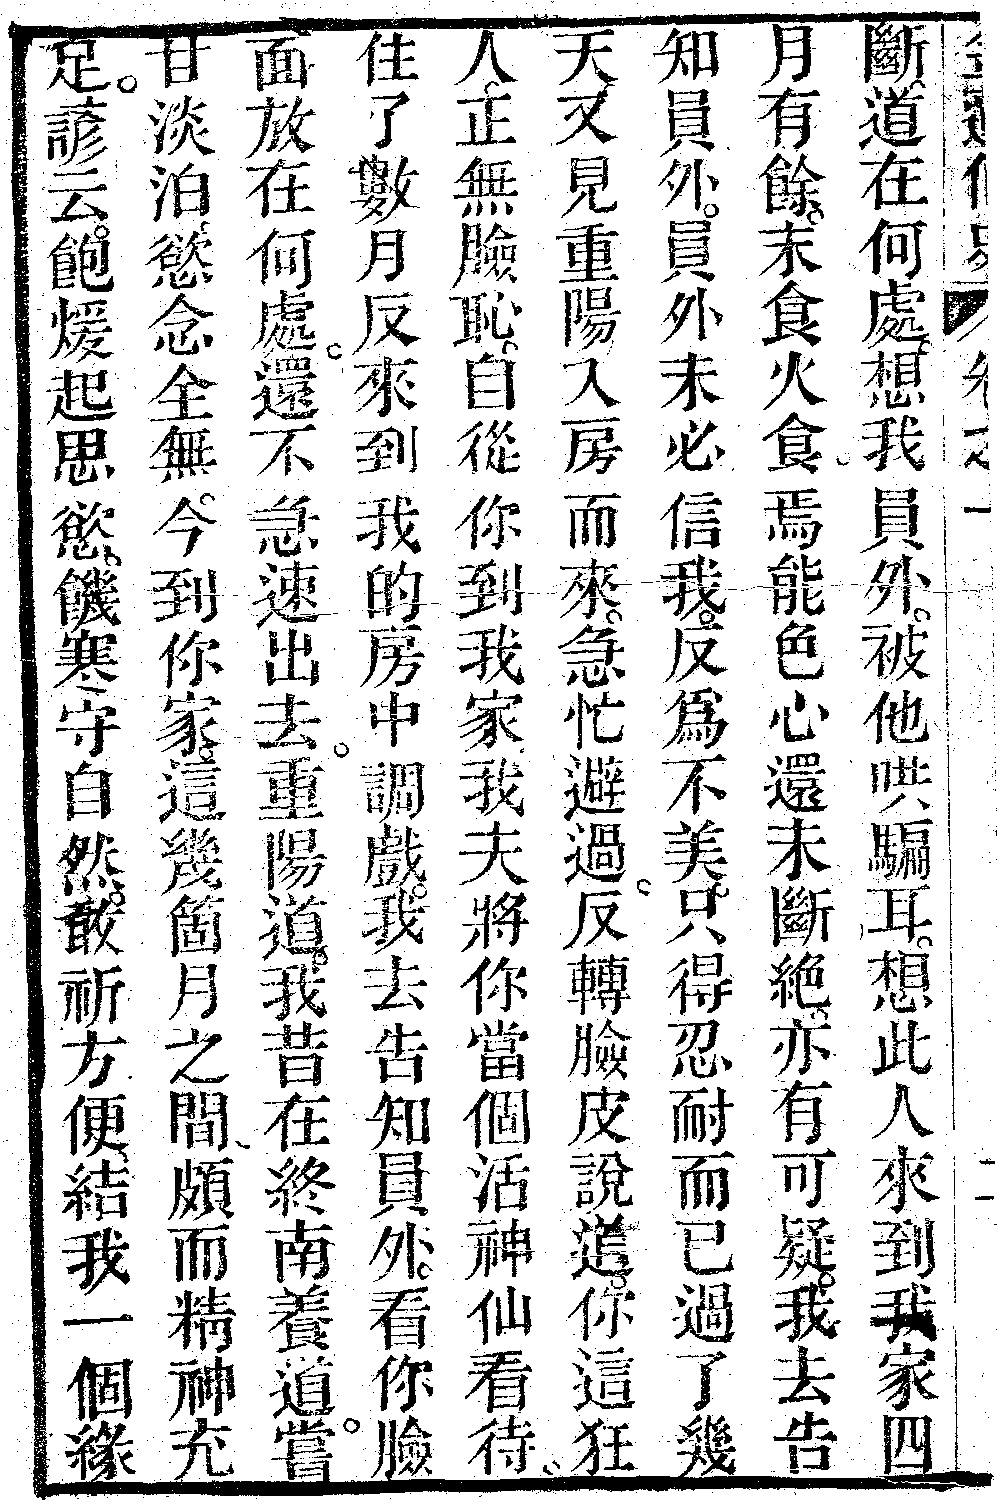 斷道在何處想我員外被他哄騙耳想此人來到我家四
月有餘末食火食焉能色心還未斷絕亦有可疑我去告
知員外員外未必信我反爲不美只得忍耐而已過了幾
天又見重陽入房而來急忙避過反轉臉皮說道你這狂
人正無臉恥自從你到我家我夫將你當個活神仙看待
住了數月反來到我的房中調戲我去告知員外看你臉
面放在何處還不急速出去重陽道我昔在終南養道嘗
甘淡泊慾念全無今到你家這幾箇月之間頗而精神充
足諺云飽煖起思慾饑寒守自然敢祈方便結我一個緣